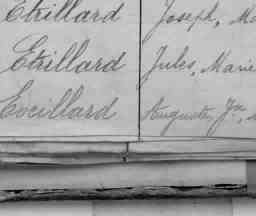 Etrillard Joseph, Ma
Etrillard Jules, Marie
Eveillard Auguste, Jn,